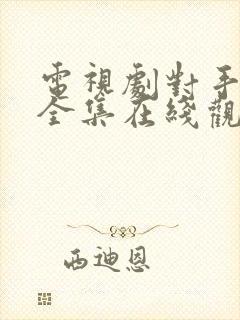 電視劇對手
全集在綫觀
西迪恩